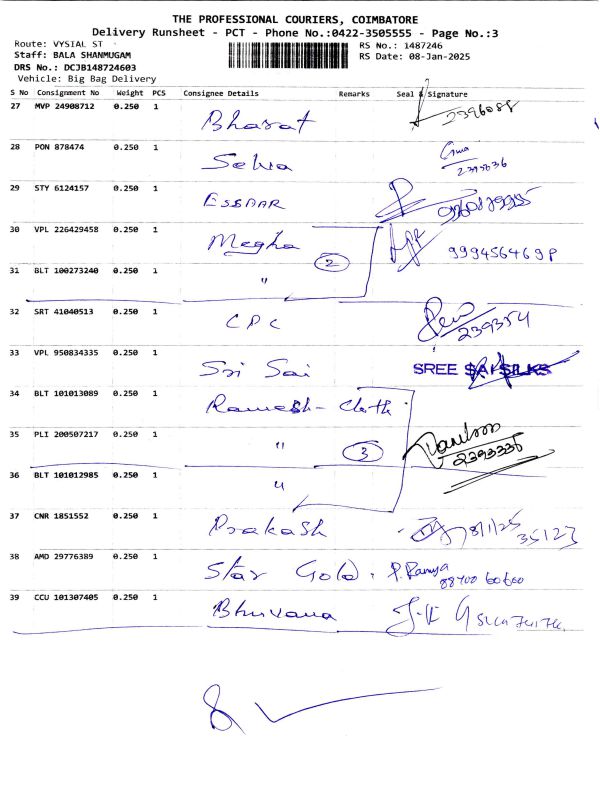 THE PROFESSIONAL COURIERS, COIMBATORE
Delivery Runsheet - PCT - Phone No.:0422-3505555 - Page No.:3
Route: VYSIAL ST
RS No.: 1487246
Staff: BALA SHANMUGAM
RS Date: 08-Jan-2025
DRS No.: DCJB148724603
Vehicle: Big Bag Delivery
S No Consignment No Weight PCS Consignee Details Remarks Seal & Signature
27 MVP 24908712 0.250 1 Bharat 2396088
28 PON 878474 0.250 1 Selva 2395636
29 STY 6124157 0.250 1 ESSDAR
30 VPL 226429458 0.250 1 Megha 999456469P
2
31 BLT 100273240 0.250 1 "
32 SRT 41040513 0.250 1 CPC 239354
33 VPL 950834335 0.250 1 Sri Sai SREE SAI SILKS
34 BLT 101013089 0.250 1 Ramesh - Cloth
35 PLI 200507217 0.250 1 " 3 2393335
36 BLT 101012985 0.250 1 "
37 CNR 1851552 0.250 1 Prakash 8/1/25 35123
38 AMD 29776389 0.250 1 Star Gold. P. Ramya
88700 60600
39 CCU 101307405 0.250 1 Bhuvana